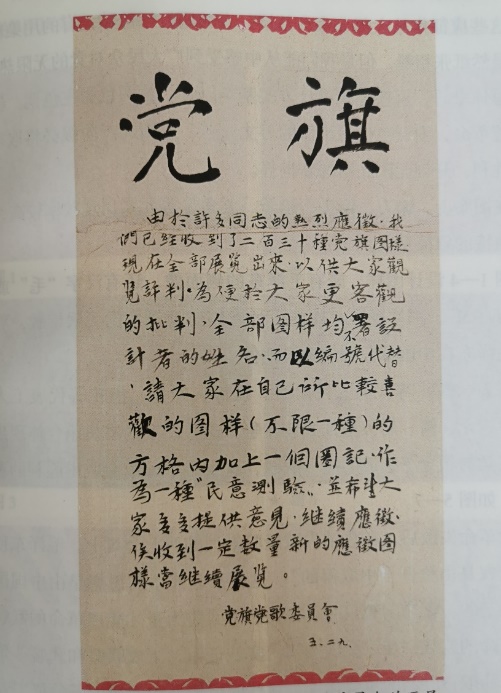 党 旗
由於許多同志的热烈應徵·我
們已經收到了二百三十種党旗图樣
現在全部展览出來·以供大家觀
览評判。為便於大家更客觀
的批判·全部图样均不署設
計者的姓名·而以编號代替
·請大家在自己所比較喜
歡的图样(不限一種)的
方格内加上一個圈記·作
為一種"民意測驗"·並希望大
家多多提供意見·继續應徵·
俟收到一定数量新的應徵图
樣當继續展览。
党旗党歌委員會
3.二九.